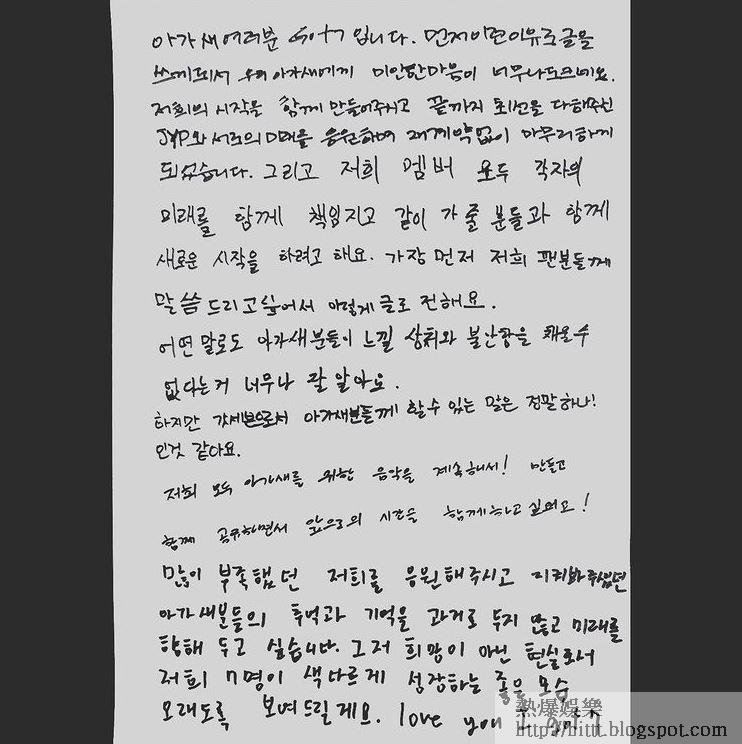 아가새여러분 Got7 입니다. 먼저 이런이유로글을
쓰게되서 우리 아가새에게 미안한마음이 너무나도크네요.
저희의 시작을 함께 만들어주시고 끝까지 최선을 다해주신
JYP와 서로의 미래를 응원하며 재계약없이 마무리하게
되었습니다. 그리고 저희 멤버 모두 각자의
미래를 함께 책임지고 같이 가줄 분들과 함께
새로운 시작을 하려고 해요. 가장 먼저 저희 팬분들께
말씀드리고싶어서 이렇게 글로 전해요.
어떤 말로도 아가새분들이 느낄 상처와 불안함을 채울수
없다는거 너무나 잘 알아요.
하지만 갓세븐으로서 아가새분들께 할수 있는 말은 정말하나!
인것 같아요.
저희 모두 아가새를 위한 음악을 계속해서! 만들고
함께 공유하면서 앞으로의 시간을 함께하고싶어요!
많이 부족했던 저희를 응원해주시고 지켜봐주셨던
아가새분들의 추억과 기억을 과거로 두지 않고 미래를
향해 두고 싶습니다. 그저 희망이 아닌 현실로서
저희 7명이 색다르게 성장하는 좋은 모습
오래도록 보여드릴게요. love you
熱爆娛樂
http://hittt.blogspot.com